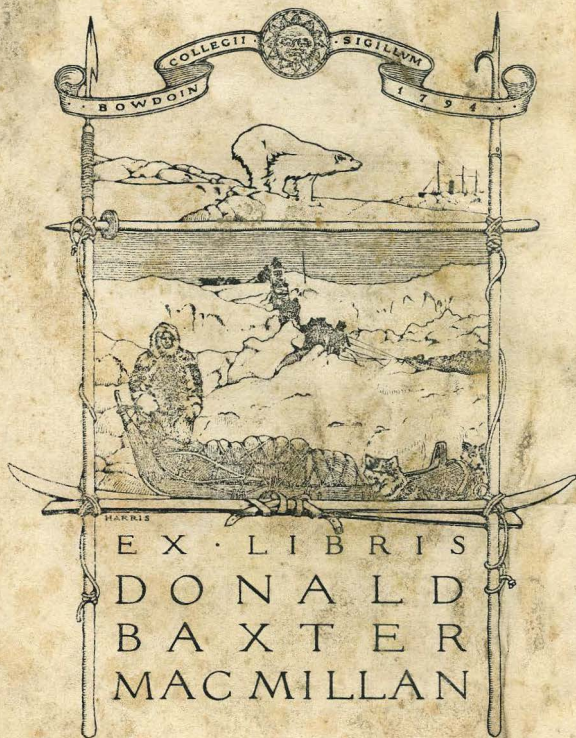 BOWDOIN · COLLEGII · SIGILLVM · 1794 ·
HARRIS
EX · LIBRIS
DONALD
BAXTER
MACMILLAN